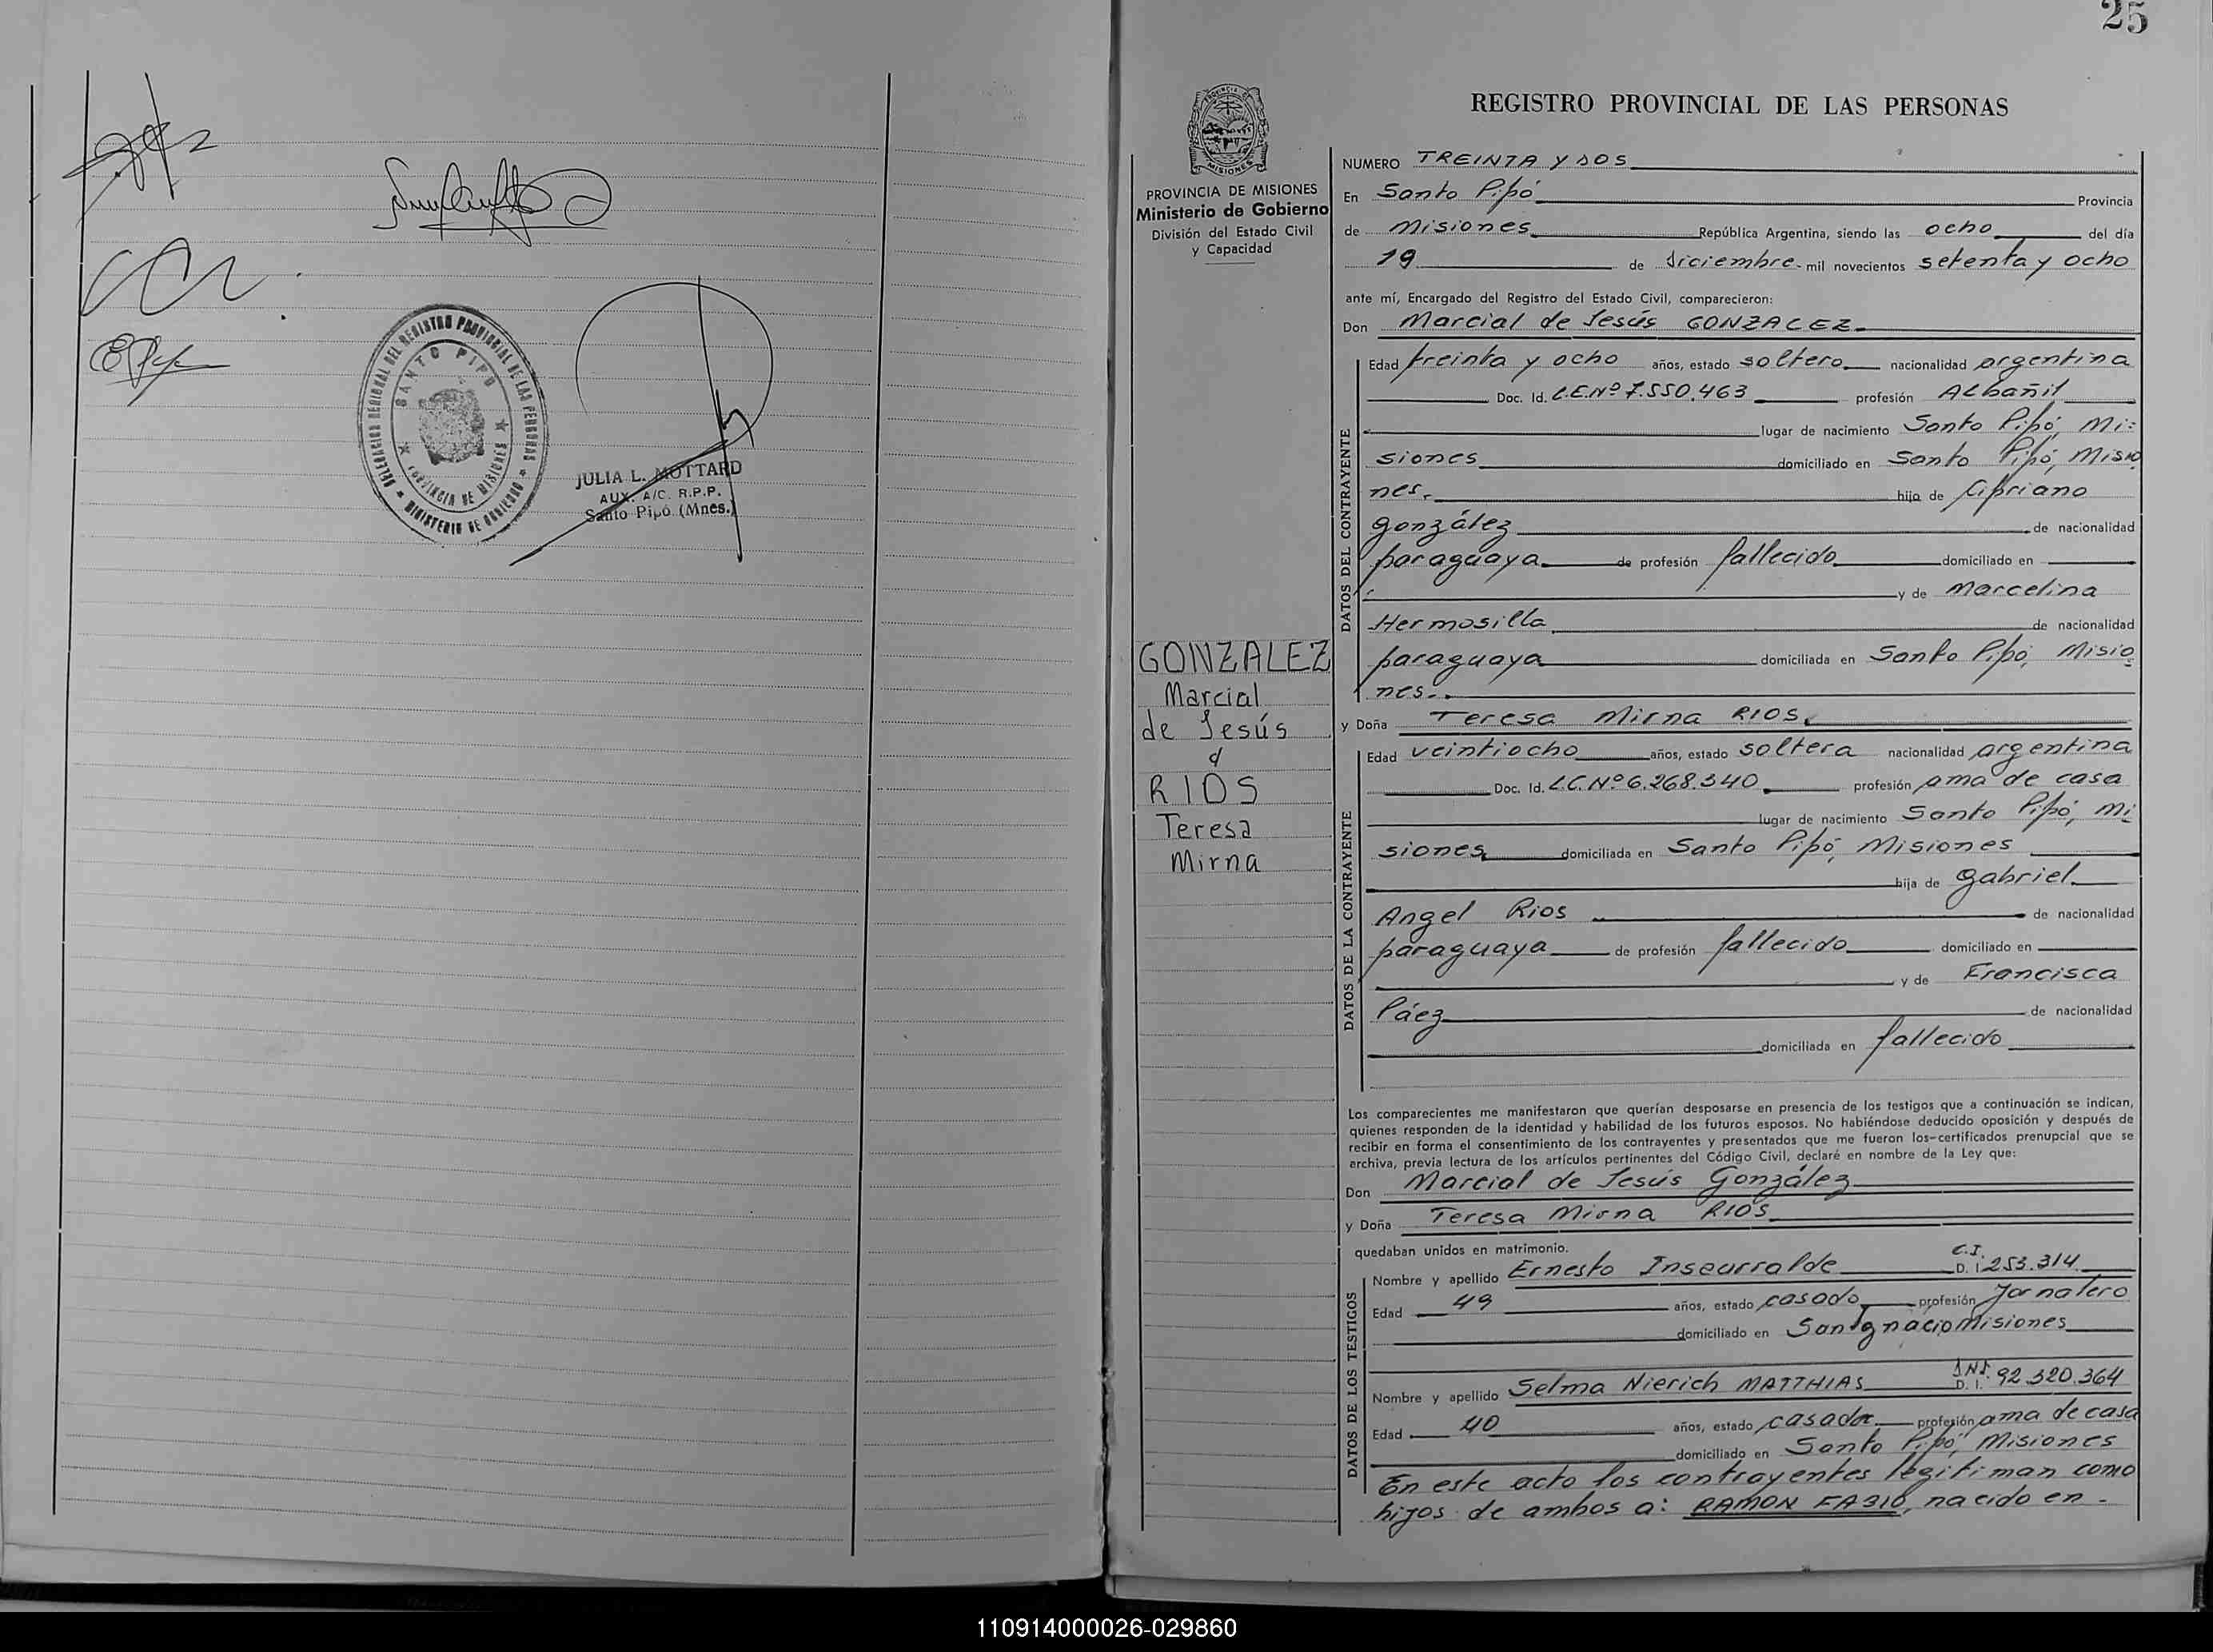 DELEGACION REGIONAL DEL REGISTRO PROVINCIAL DE LAS PERSONAS
MINISTERIO DE GOBIERNO
SANTO PIPO
PROVINCIA DE MISIONES
JULIA L. MOTTARD
AUX. A/C. R.P.P.
Santo Pipó (Mnes.)
25
REGISTRO PROVINCIAL DE LAS PERSONAS
PROVINCIA DE MISIONES
Ministerio de Gobierno
División del Estado Civil
y Capacidad
GONZALEZ
Marcial
de Jesús
RIOS
Teresa
Mirna
NUMERO TREINTA Y DOS
En Santo Pipó Provincia
de Misiones República Argentina, siendo las ocho del día
19 de diciembre mil novecientos setenta y ocho
ante mí, Encargado del Registro del Estado Civil, comparecieron:
Don Marcial de Jesús GONZALEZ
DATOS DEL CONTRAYENTE
Edad treinta y ocho años, estado soltero nacionalidad argentina
Doc. Id. L.E.Nº 7.550.463 profesión Albañil
lugar de nacimiento Santo Pipó, Mi-
siones domiciliado en Santo Pipó, Misio
nes. hijo de Cipriano
González de nacionalidad
paraguaya de profesión fallecido domiciliado en
y de Marcelina
Hermosilla de nacionalidad
paraguaya domiciliada en Santo Pipó, Misio
nes.
y Doña Teresa Mirna RIOS
DATOS DE LA CONTRAYENTE
Edad veintiocho años, estado soltera nacionalidad argentina
Doc. Id. L.C.Nº 6.268.340 profesión ama de casa
lugar de nacimiento Santo Pipó, Mi
siones domiciliada en Santo Pipó, Misiones
hija de Gabriel
Angel Rios de nacionalidad
paraguaya de profesión fallecido domiciliado en
y de Francisca
Páez de nacionalidad
domiciliada en fallecido
Los comparecientes me manifestaron que querían desposarse en presencia de los testigos que a continuación se indican,
quienes responden de la identidad y habilidad de los futuros esposos. No habiéndose deducido oposición y después de
recibir en forma el consentimiento de los contrayentes y presentados que me fueron los-certificados prenupcial que se
archiva, previa lectura de los artículos pertinentes del Código Civil, declaré en nombre de la Ley que:
Don Marcial de Jesús González
y Doña Teresa Mirna RIOS
quedaban unidos en matrimonio.
DATOS DE LOS TESTIGOS
Nombre y apellido Ernesto Inseurralde C.I. D. I. 253.314
Edad 49 años, estado casado profesión Jornalero
domiciliado en San Ignacio Misiones
Nombre y apellido Selma Nierich MATTHIAS DNI. D. I. 92.320.364
Edad 40 años, estado casada profesión ama de casa
domiciliado en Santo Pipó Misiones
En este acto los contrayentes legitiman como
hijos de ambos a: RAMON FABIO, nacido en
110914000026-029860